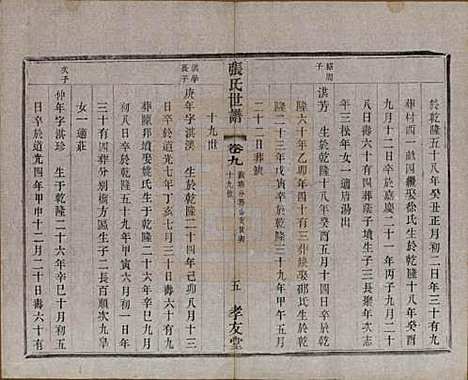 於乾隆五十八年癸丑正月初二日年三十有九
葬村西一畝四徐氏生於乾隆十八年癸酉
九月十二日卒於嘉慶二十一年丙子九月二十
二日壽六十有四葬蔭子墳生子三長年次志
年三松年女一適唐湯出
子
淇芳 生於乾隆十八年癸酉五月十四日卒於乾
隆六十年乙卯年四十有三葬娶邵氏生於乾
隆二十三年戊寅卒於乾隆三十九年甲午五月
二十二日葬缺
張氏世譜
卷九
十九世
五
孝友堂
十九世
淇學
長子
庚年 字淇溪 生於乾隆二十四年己卯八月十三
日卒於道光七年丁亥七月三日壽六十有九
葬邦墳娶姚氏生於乾隆二十二年九月
初八日卒於乾隆五十九年甲寅六月初四日年
三十有四葬分別橋方區生子二長百順次九皐
女一適莊
次子
仲年 字淇珍 生於乾隆二十六年辛巳六月初五
日卒於道光四年甲申十二月十日壽六十有